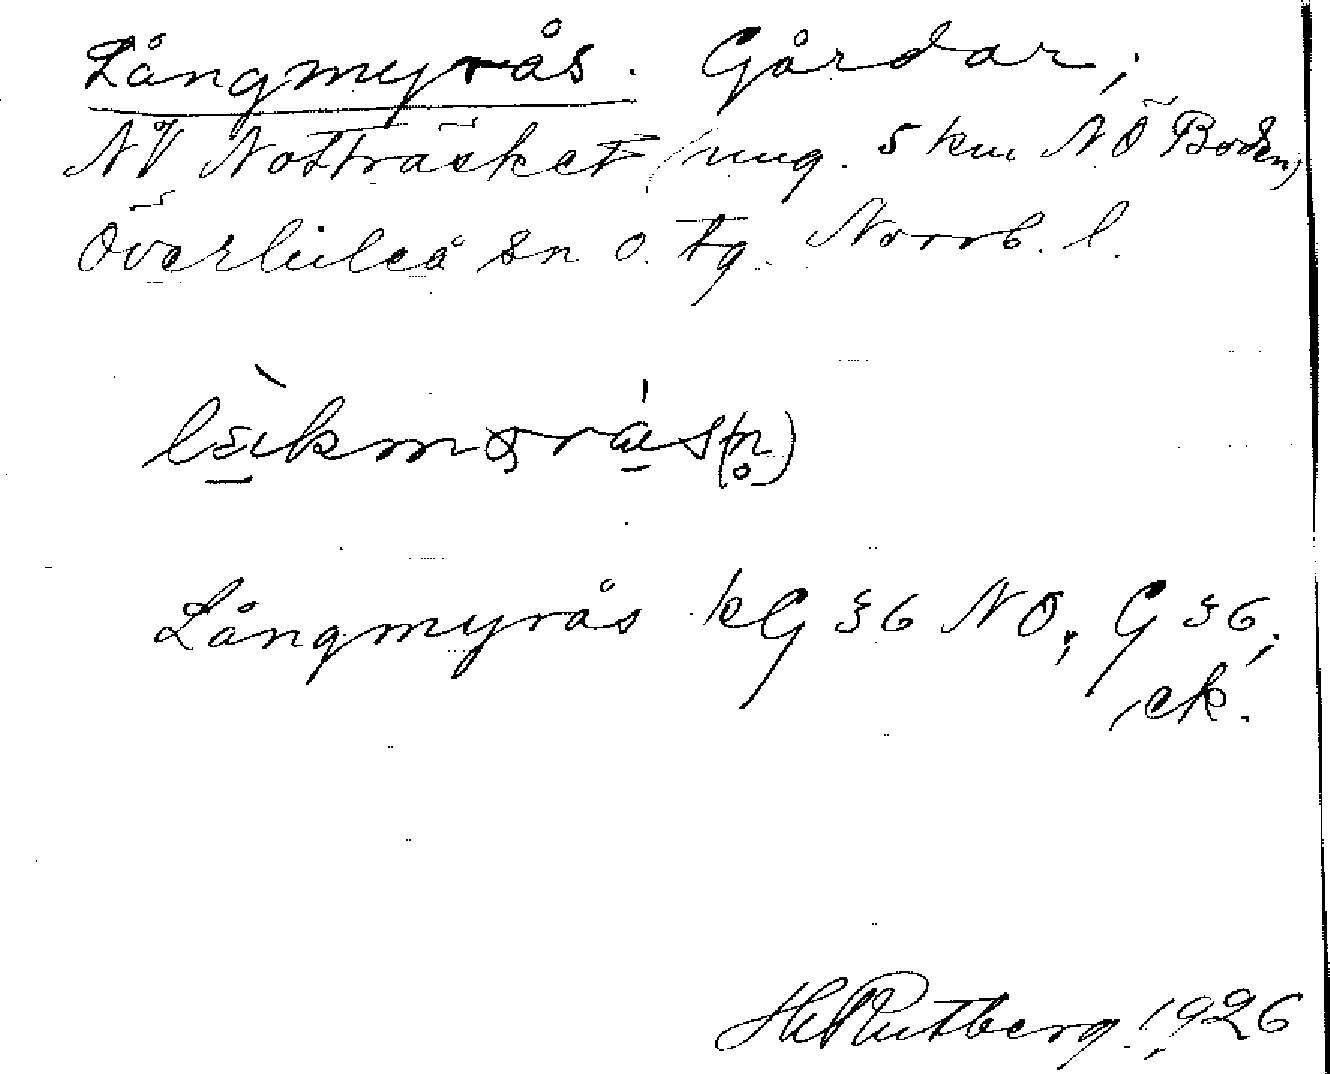 Långmyrås. Gårdar,
NV Notträsket (ung. 5 km NÖ Boden)
Överluleå sn o. tg. Norrb. l.
Långmyrås kG §6 NO, G §6,
ek.
H Rutberg 1926